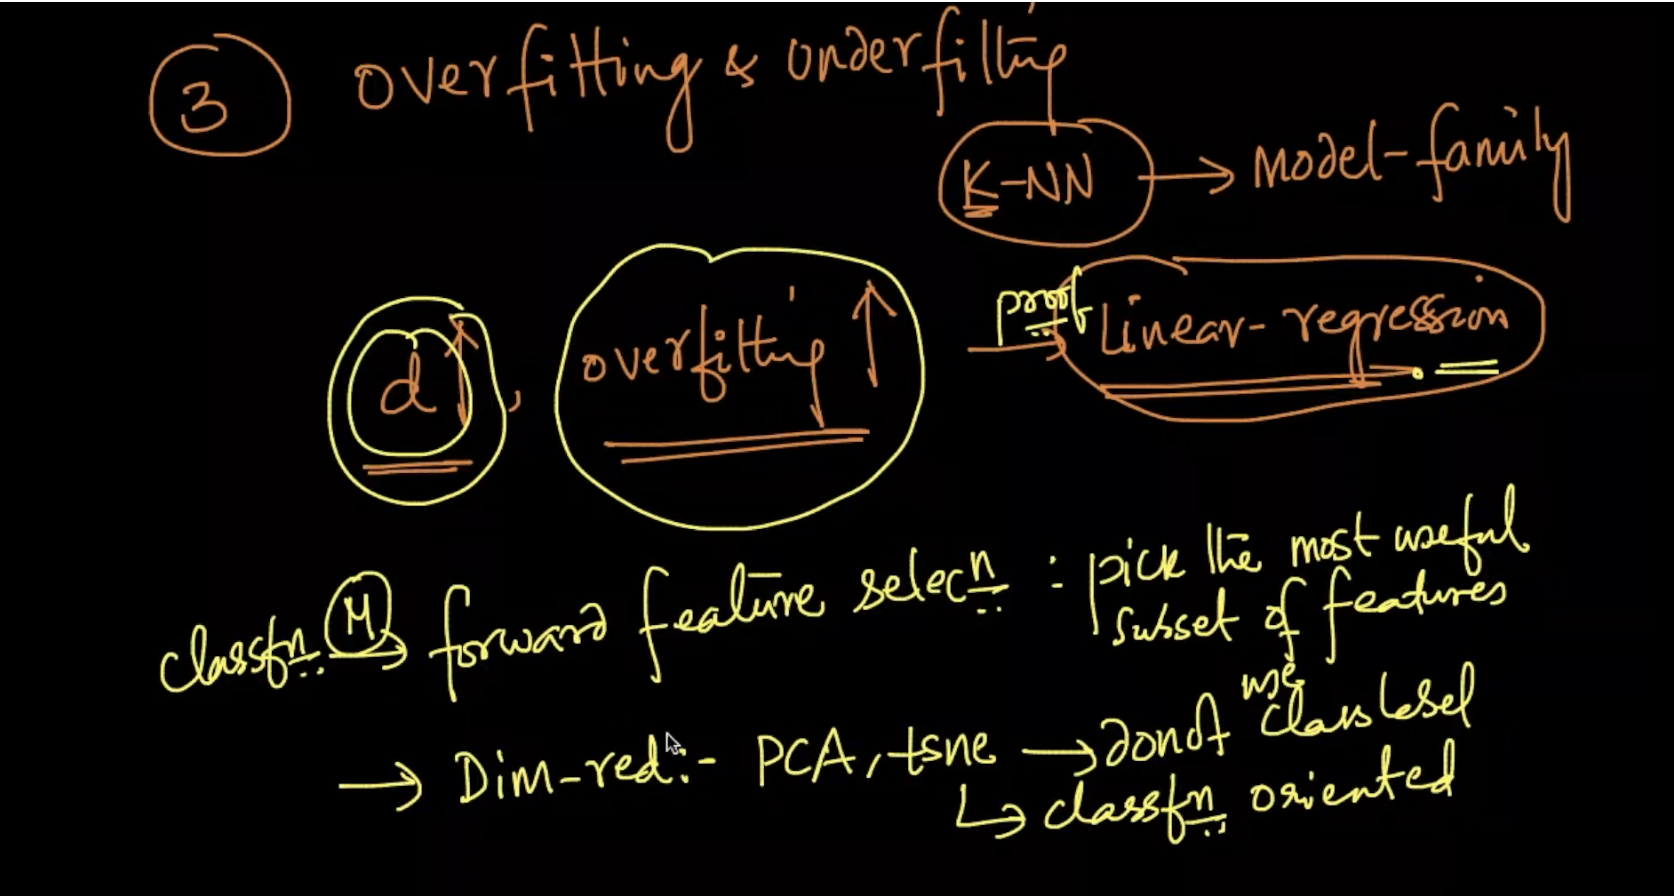 3 overfitting & underfitting
K-NN → Model-family
d↑, overfitting ↑ proof → Linear-regression
classfn. M → forward feature selecn : pick the most useful
subset of features
→ Dim-red:- PCA, tsne → donot use class label
↳ classfn oriented